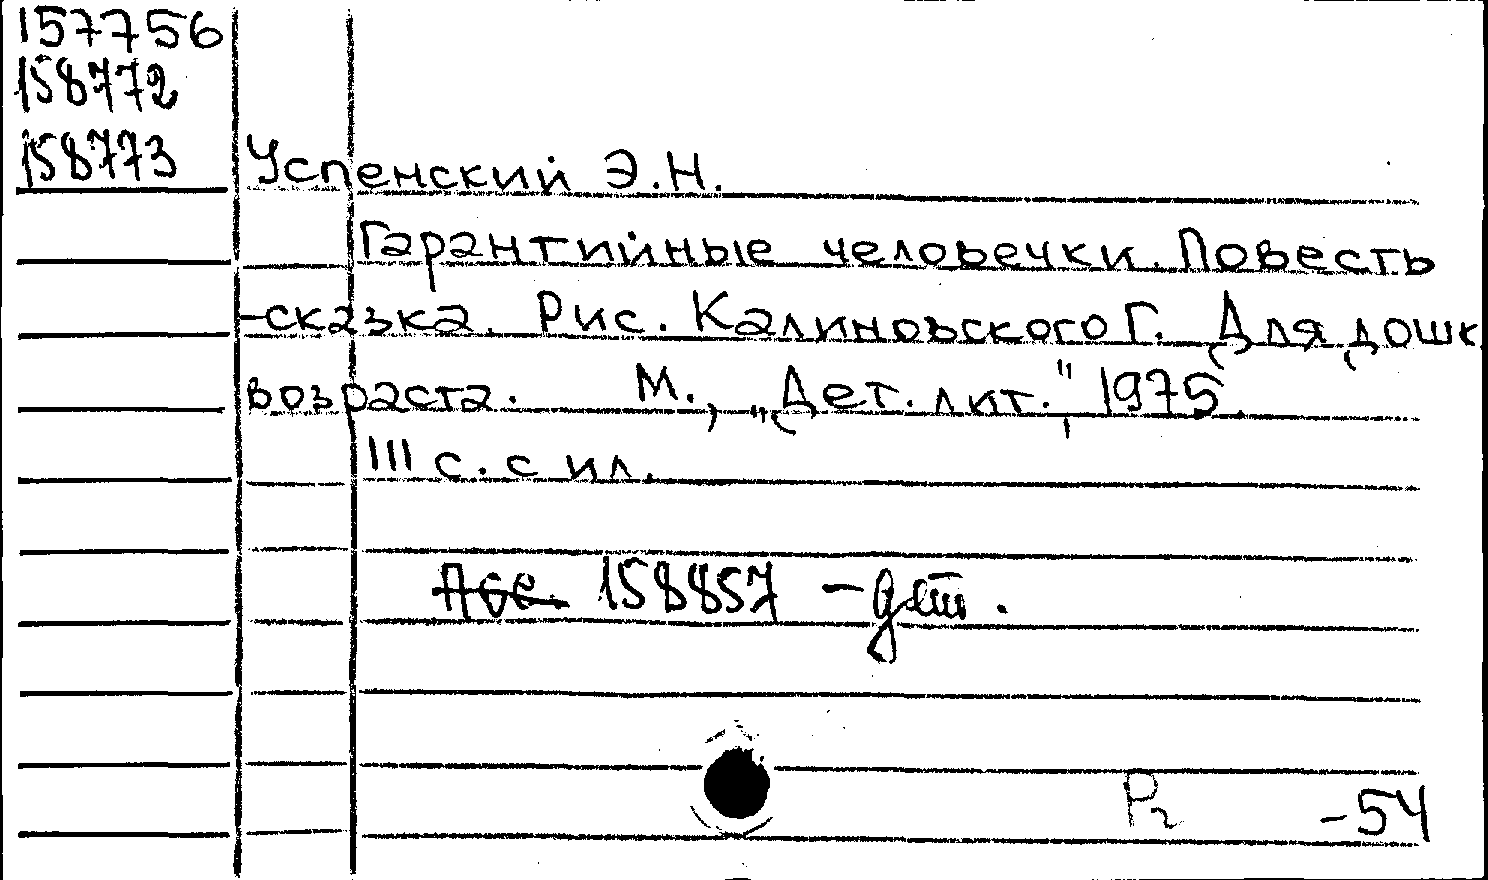 157756
158772
158773
Успенский Э.Н.
Гарантийные человечки. Повесть
-сказка. Рис. Калиновского Г. Для дошк
возраста. М., „Дет. лит.", 1975.
111 с. с ил.
158857 - дет.
Р2 -54